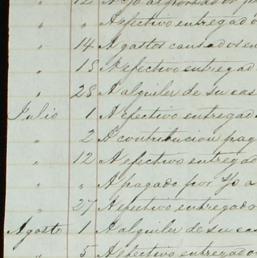 " 12 " pr
" " A efectivo entregado
" 14 A gastos causados en
" 15 A efectivo entregad
" 28 A alquiler de su cas
Julio 1 A efectivo entregad
" 2 A contribucion pag
" 12 A efectivo entregad
" " A pagado por
" 27 A efectivo entregado
Agosto 1 A alquiler de su ca
" 5 A efectivo entregado